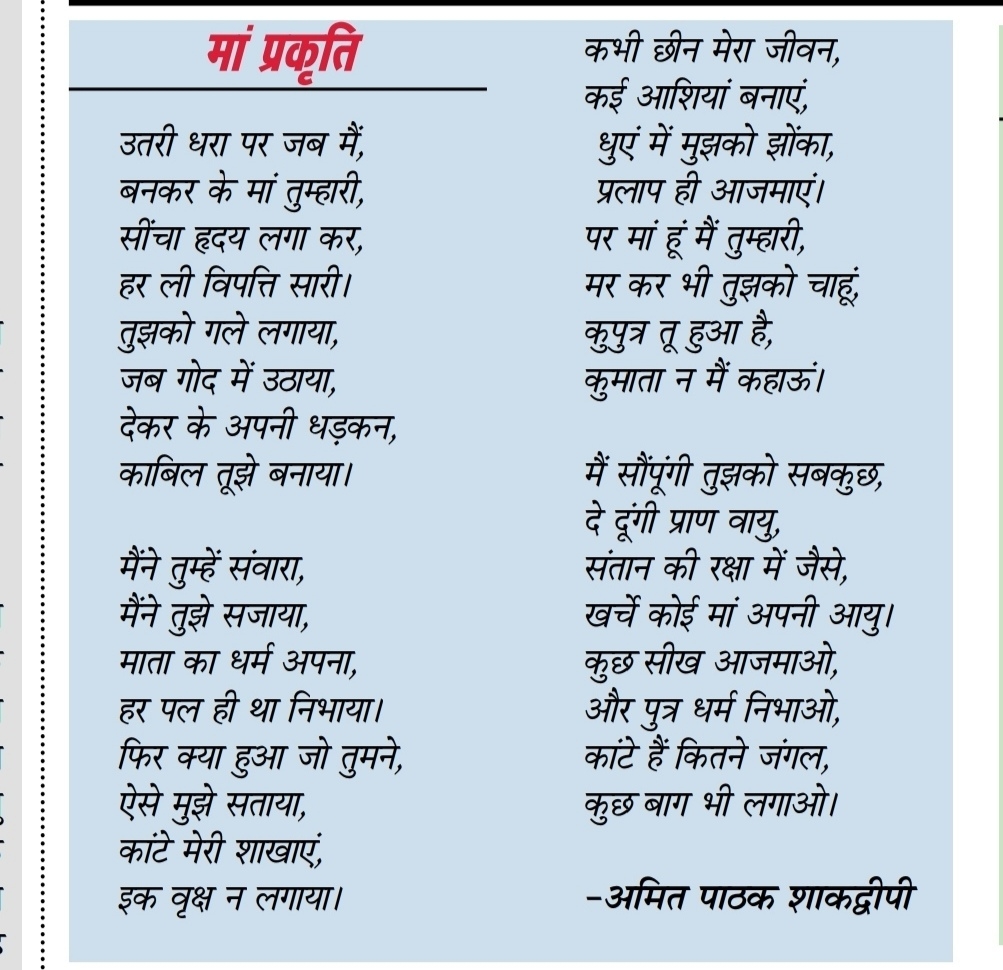 मां प्रकृति
उतरी धरा पर जब मैं,
बनकर के मां तुम्हारी,
सींचा हृदय लगा कर,
हर ली विपत्ति सारी।
तुझको गले लगाया,
जब गोद में उठाया,
देकर के अपनी धड़कन,
काबिल तूझे बनाया।
मैंने तुम्हें संवारा,
मैंने तुझे सजाया,
माता का धर्म अपना,
हर पल ही था निभाया।
फिर क्या हुआ जो तुमने,
ऐसे मुझे सताया,
कांटे मेरी शाखाएं,
इक वृक्ष न लगाया।
कभी छीन मेरा जीवन,
कई आशियां बनाएं,
धुएं में मुझको झोंका,
प्रलाप ही आजमाएं।
पर मां हूं मैं तुम्हारी,
मर कर भी तुझको चाहूं,
कुपुत्र तू हुआ है,
कुमाता न मैं कहाऊं।
मैं सौंपूंगी तुझको सबकुछ,
दे दूंगी प्राण वायु,
संतान की रक्षा में जैसे,
खर्चे कोई मां अपनी आयु।
कुछ सीख आजमाओ,
और पुत्र धर्म निभाओ,
कांटे हैं कितने जंगल,
कुछ बाग भी लगाओ।
–अमित पाठक शाकद्वीपी